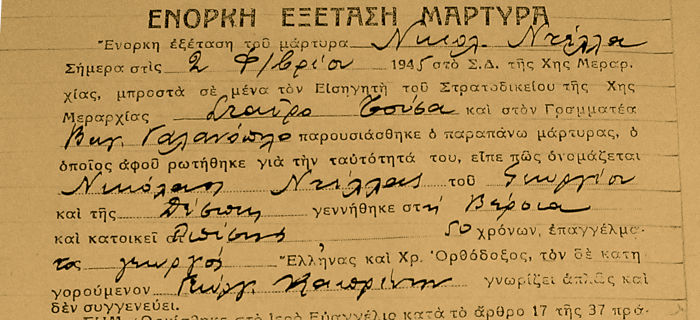 ΕΝΟΡΚΗ ΕΞΕΤΑΣΗ ΜΑΡΤΥΡΑ
Ἔνορκη ἐξέταση τοῦ μάρτυρα Νικολ. Ντέλλα
Σήμερα στὶς 2 Φ/βρίου 1945 στὸ Σ.Δ. τῆς Χης Μεραρ-
χίας, μπροστὰ σὲ μένα τὸν Εἰσηγητὴ τοῦ Στρατοδικείου τῆς Χης
Μεραρχίας Σταῦρο καὶ στὸν Γραμματέα
Βαγ. Γαλανόπλο παρουσιάσθηκε ὁ παραπάνω μάρτυρας, ὁ
ὁποῖος ἀφοῦ ρωτήθηκε γιὰ τὴν ταὐτότητά του, εἶπε πῶς ὀνομάζεται
Νικόλαος Ντέλλας τοῦ Γεωργίου
καὶ τῆς γεννήθηκε στ ἡ Βέροια
καὶ κατοικεῖ 50 χρόνων, ἐπαγγέλμα-
τος γεωργός Ἕλληνας καὶ Χρ. Ὀρθόδοξος, τὸν δὲ κατη
γορούμενον Γεώργ. γνωρίζει ἁπλῶς καὶ
δὲν συγγενεύει.
Ὁρκίσθηκε στὸ Ἱερὸ Εὐαγγέλιο κατὰ τὸ ἄρθρο 17 τῆς 37 πρά-